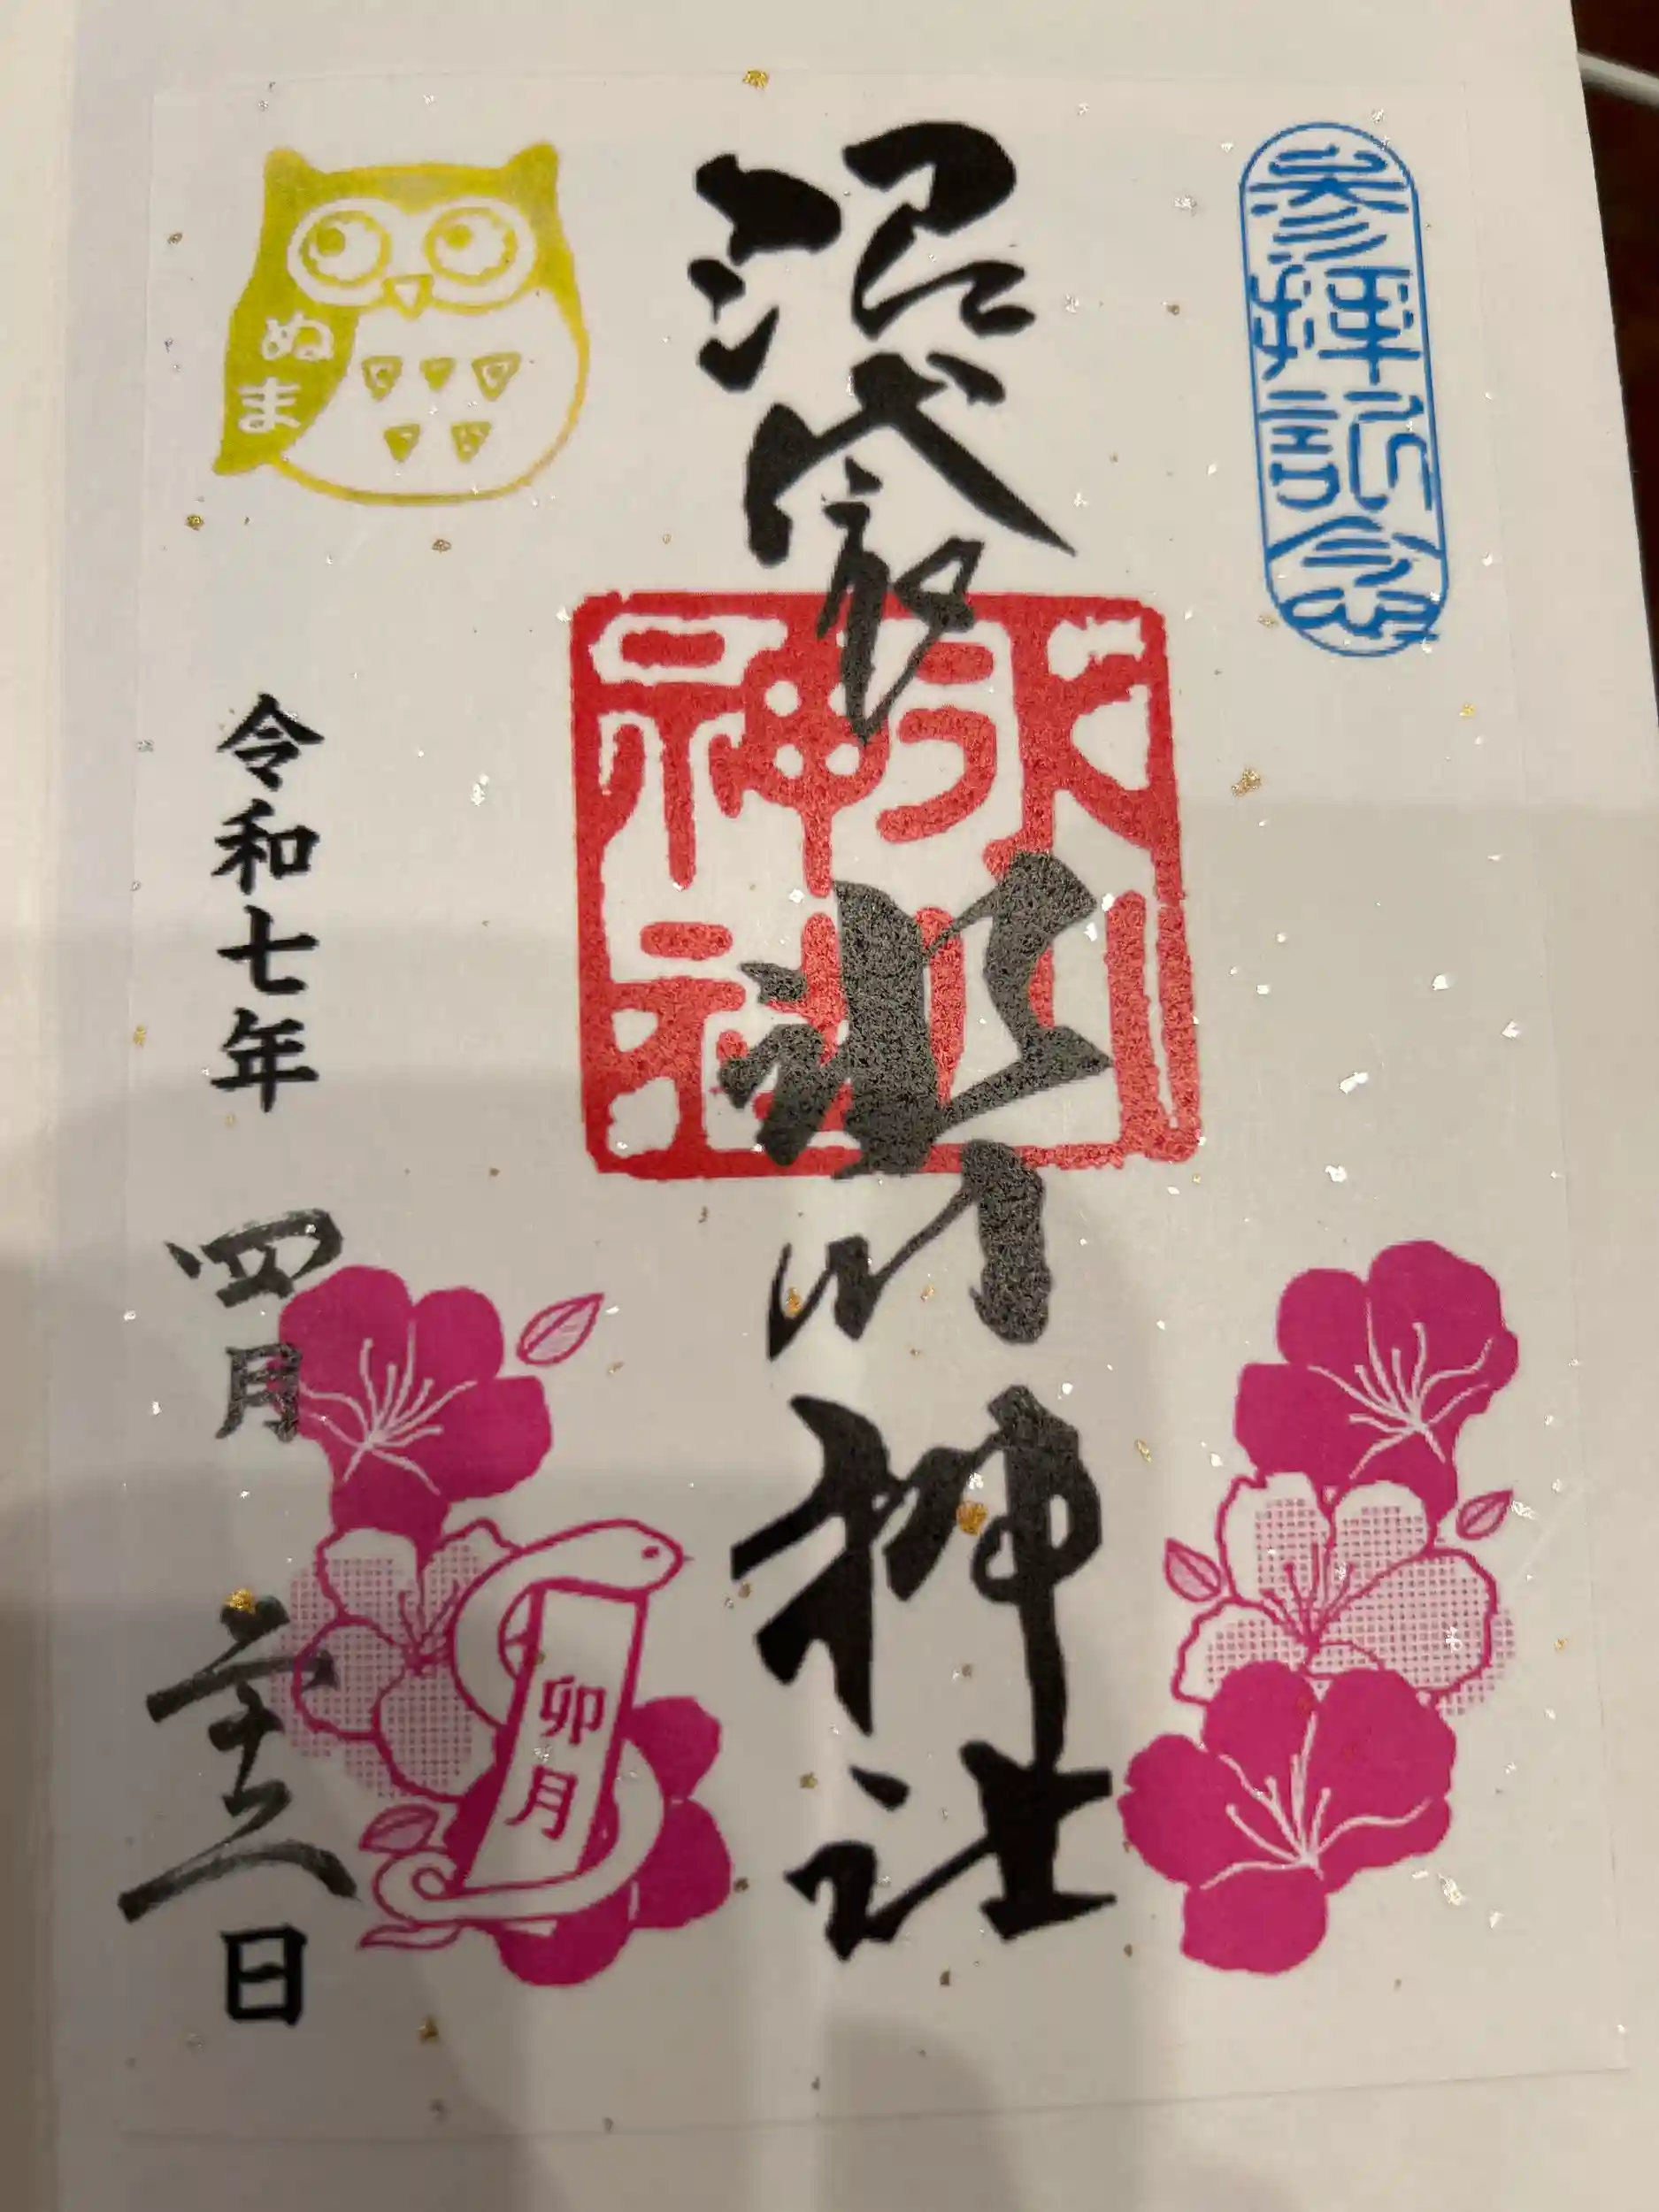 参拝記念
沼袋氷川神社
氷川
神社
ぬま
令和七年 四月 日
卯月